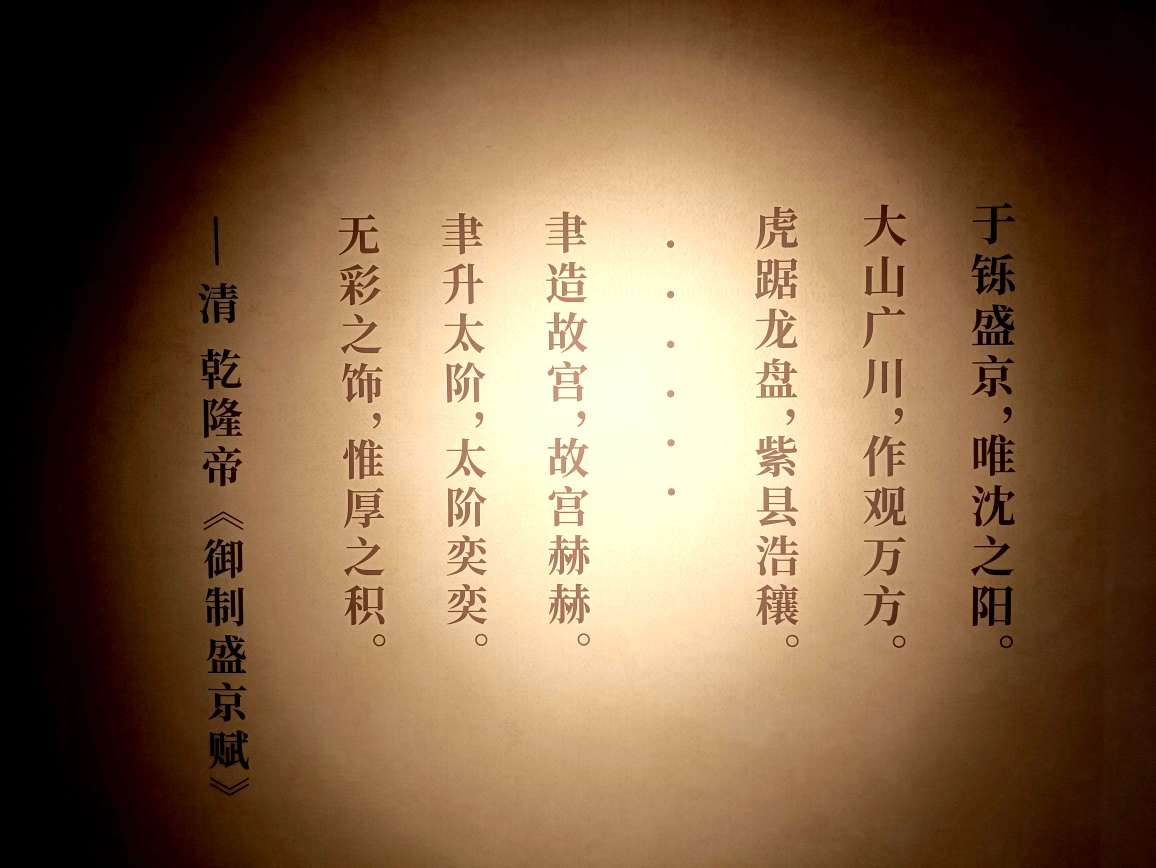 于铄盛京，唯沈之阳。
大山广川，作观万方。
虎踞龙盘，紫县浩穰。
······
聿造故宫，故宫赫赫。
聿升太阶，太阶奕奕。
无彩之饰，惟厚之积。
—清 乾隆帝《御制盛京赋》